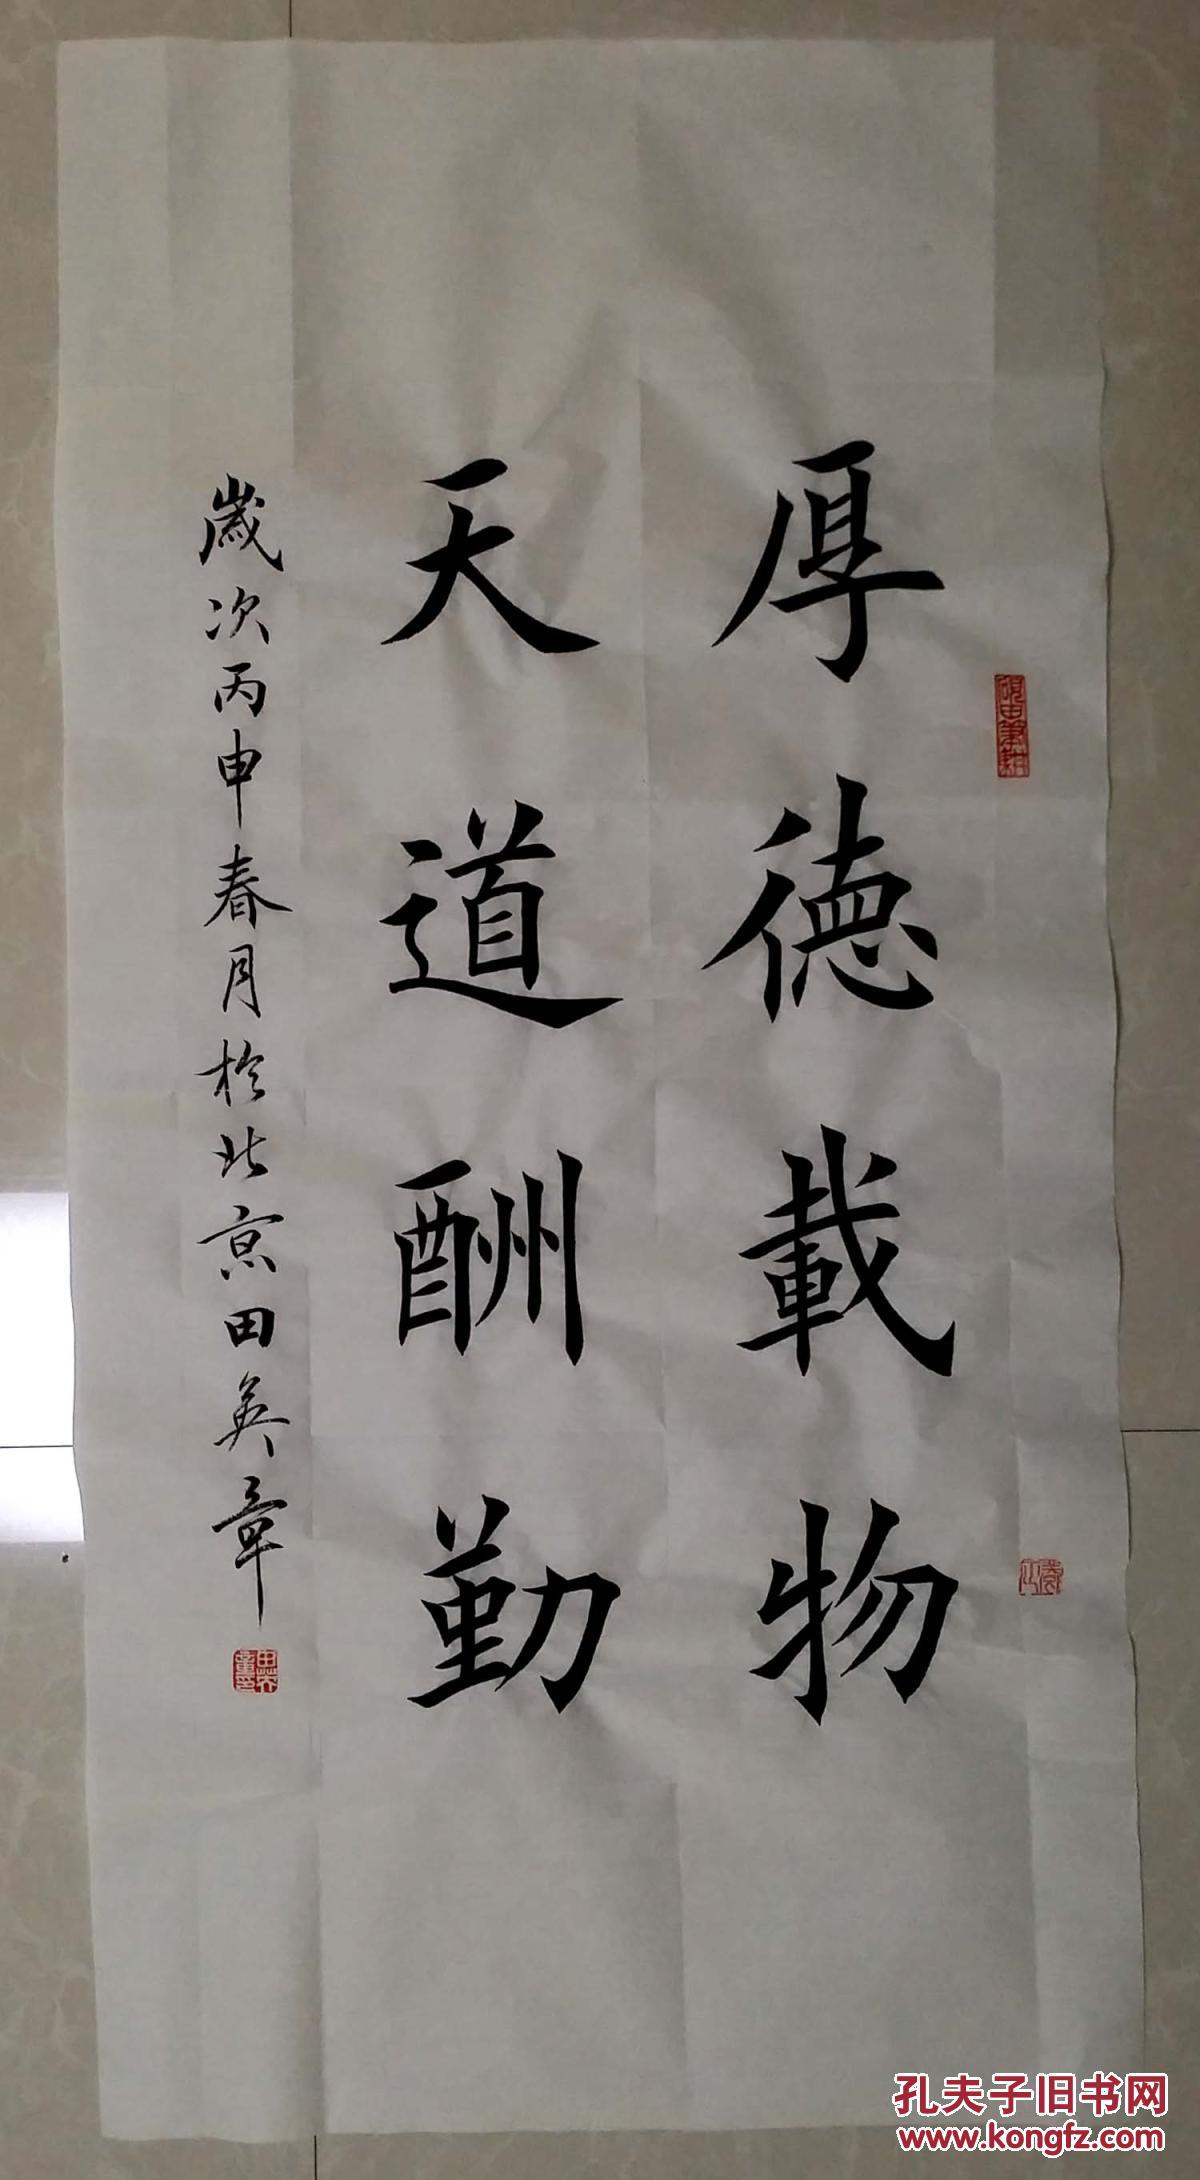 厚德載物
天道酬勤
歲次丙申春月於北京田英章
硯田筆耕
田英章印
孔夫子旧书网
www.kongfz.com